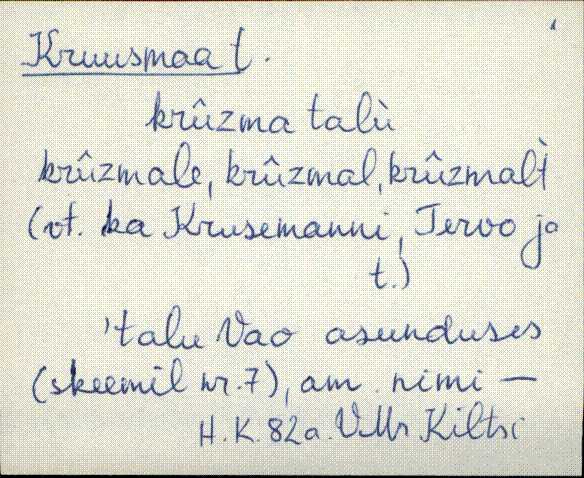 Kruusmaa t.
krûzma talù
krûzmale, krûzmal, krûzmalt̀
(vt. ka Krusemanni, Tervo ja
t.)
'talu Vao asunduses
(skeemil nr. 7), am. nimi —
H. K. 82a. VMr Kiltsi